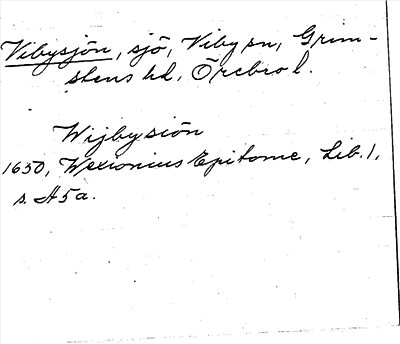 Vibysjön, sjö, Viby sn, Grim-
stens hd, Örebro l.
Wijbysiön
1650, Wexionius Epitome, Lib. 1,
s. H5a.